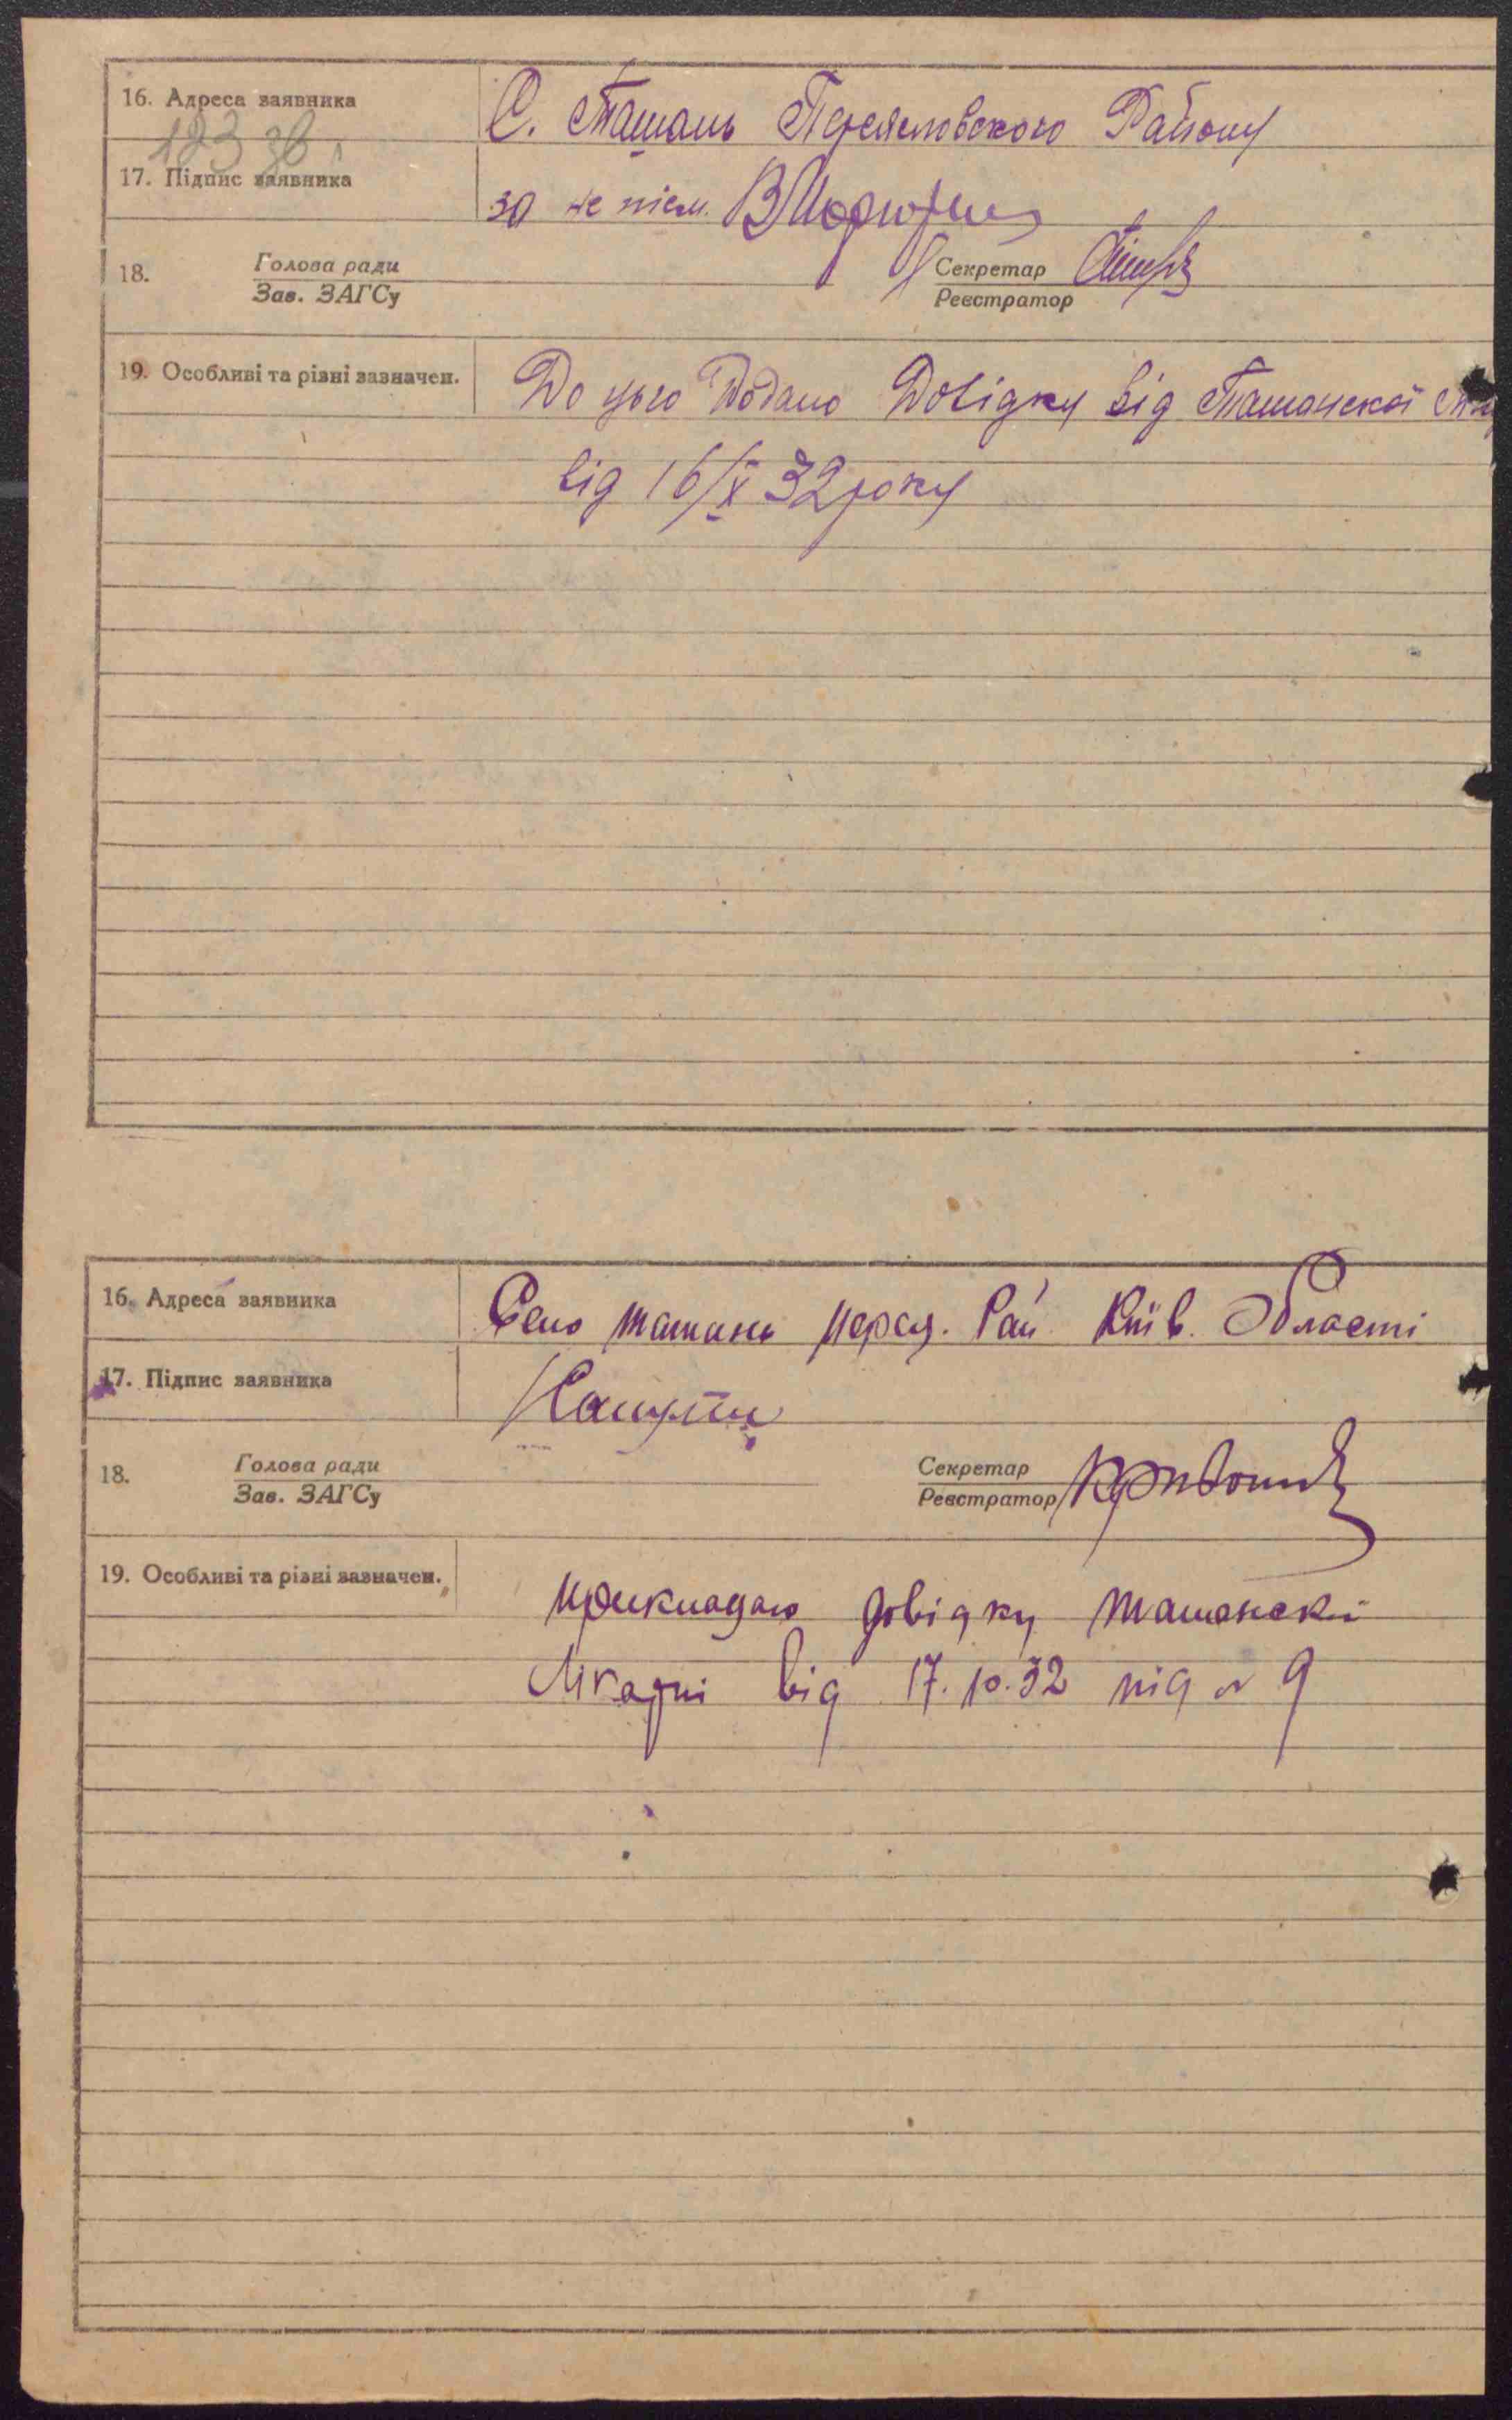 16. Адреса заявника С. Ташань Переяславского Району
17. Підпис заявника за не писм.
18. Голова ради Секретар
Зав. ЗАГСу Реєстратор
19. Особливі та різні зазначен. До цього Додано Довідку від Ташанскої
від 16/X 32 року
16. Адреса заявника Село Ташань Переяс. Рай Київ. Области
17. Підпис заявника
18. Голова ради Секретар
Зав. ЗАГСу Реєстратор
19. Особливі та різні зазначен. прикладаю довідку Ташанскії
Лікарні від 17.10.32 під № 9